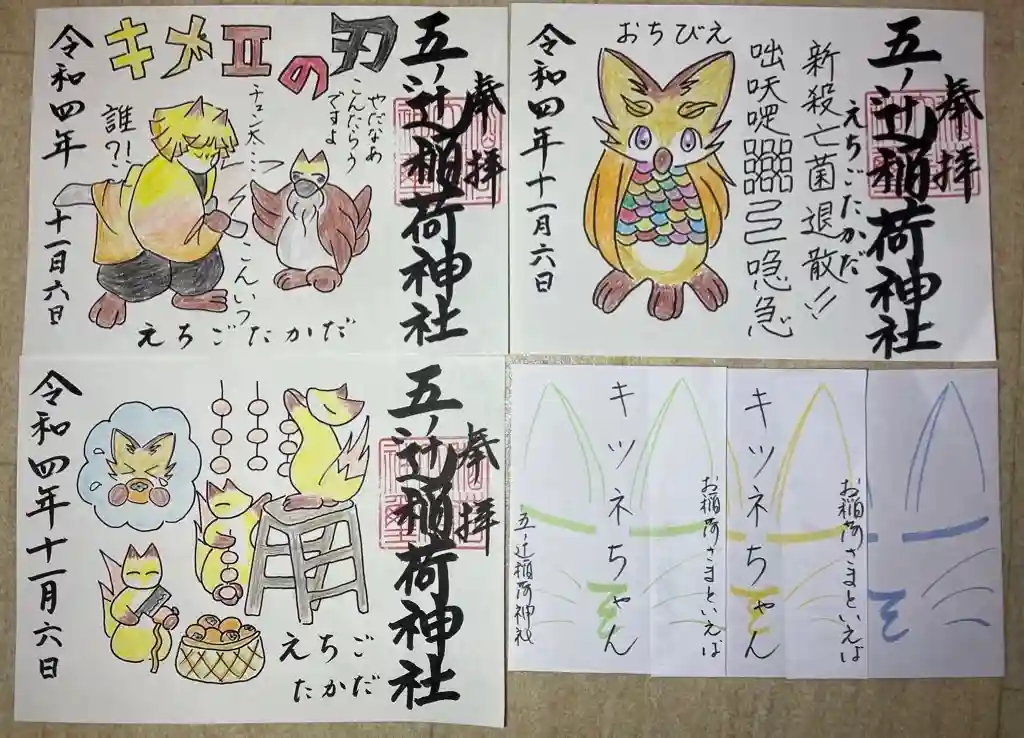 キメエの刃
五ノ辻稲荷神社
奉拝
やだなあ
こんだらう
ですよ
チュン太…
誰?!
こんいつ
令和四年
十一月六日
えちごたかだ
五ノ辻稲荷神社
奉拝
えちごたかだ
新殺亡菌退散!!
おちびえ
令和四年十一月六日
五ノ辻稲荷神社
奉拝
えちご
たかだ
令和四年十一月六日
キツネちゃん
お稲荷さまといえば
五ノ辻稲荷神社
キツネちゃん
お稲荷さまといえば